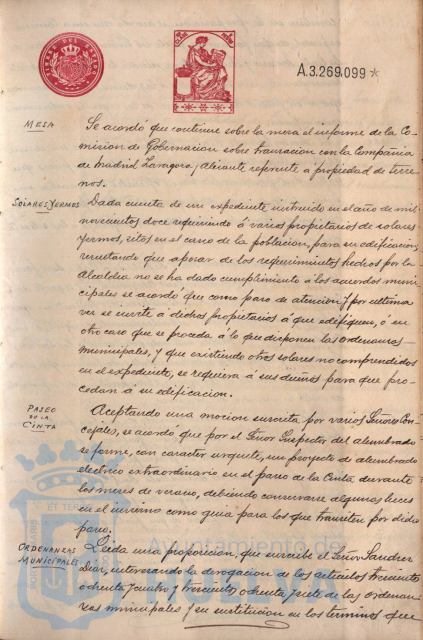 TIMBRE DEL ESTADO
A.3.269.099
MESA
Se acordó que continue sobre la mesa el informe de la Co-
mision de Gobernacion sobre transacion con la Compañia
de Madrid Zaragoza y Alicante referente á propiedad de terre
nos.
SOLARES YERMOS
Dada cuenta de un expediente instruido en el año de mil
novecientos doce requiriendo á varios propietarios de solares
yermos, sitos en el casco de la poblacion, para su edificacion,
resultando que apesar de los requerimientos hechos por la
Alcaldia no se ha dado cumplimiento á los acuerdos muni
cipales se acordó que como paso de atencion y por ultima
vez se invite á dichos propietarios á que edifiquen, ó en
otro caso que se proceda á lo que disponen las Ordenanzas
Municipales, y que existiendo otros solares no comprendidos
en el expediente, se requiera á sus dueños para que pro-
cedan á su edificacion.
PASEO DE LA CINTA
Aceptando una mocion suscrita por varios Señores Con-
cejales, se acordó que por el Señor Inspector del alumbrado
se forme, con caracter urgente, un proyecto de alumbrado
electrico extraordinario en el paseo de la Cinta durante
los meses de verano, debiendo conservarse algunas luces
en el invierno como guia para los que transiten por dicho
paseo.
ORDENANZAS MUNICIPALES
Leida una proposicion, que suscribe el Señor Sanchez
Diaz, interesando la derogacion de los articulos trescientos
ochenta y cuatro y trescientos ochenta y siete de las ordenan-
zas municipales y su sustitucion en los terminos que
Ayuntamiento de